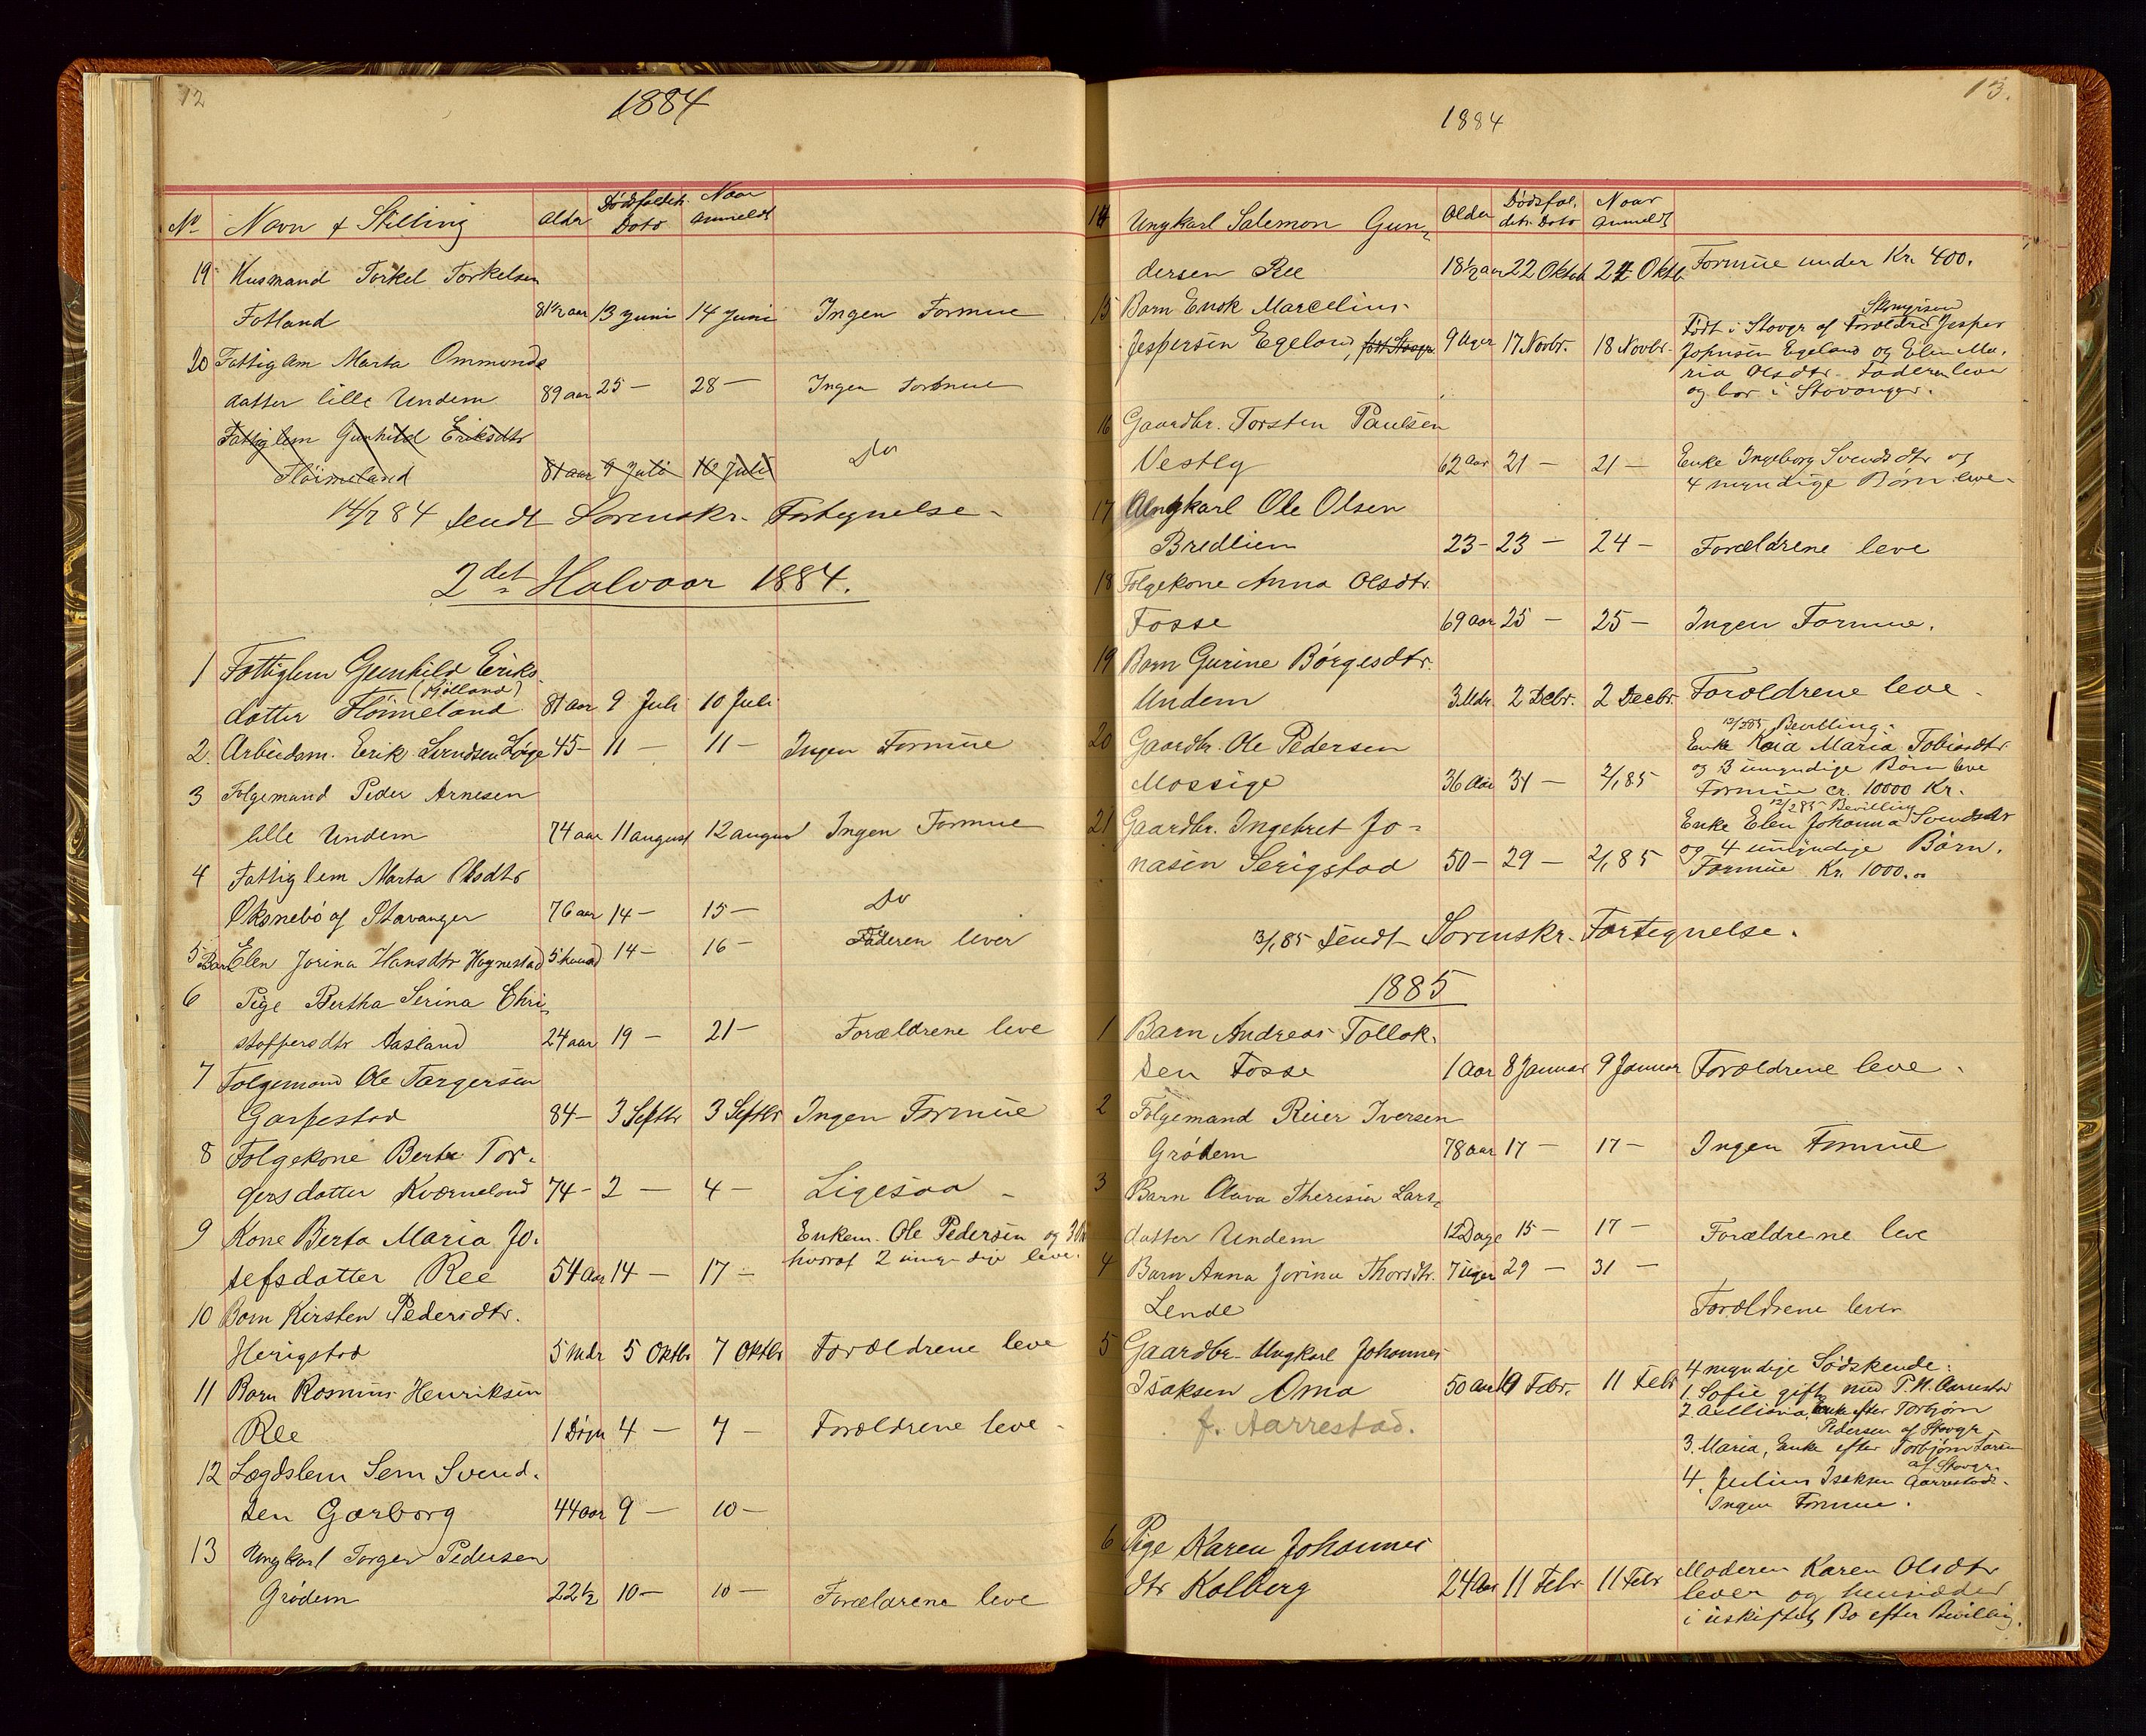 12
1884
No Navn & Stilling Alder Dødsfaldets Dato Naar anmeldt
19 Husmand Torkel Torkelsen
Fotland 81½ aar 13 Juni 14 Juni Ingen Formue
20 Fattiglem Marta Ommunds
datter lille Undem 89 aar 25 — 28 — Ingen Formue
Fattiglem Gunhild Eriksdtr
Fløimeland 81 aar 9 Juli 10 Juli Do
14/7 84 sendt Sorenskr. Fortegnelse.
2det Halvaar 1884.
1 Fattiglem Gunhild Eriks
(Kjølland)
datter Fløimeland 81 aar 9 Juli 10 Juli
2. Arbeidsm. Eerik Svendsen Lye 45 — 11 — 11 — Ingen Formue
3 Folgemand Peder Arnesen
lille Undem 74 aar 11 august 12 august Ingen Formue
4 Fattiglem Marta Olsdtr
Oksnebø af Stavanger 76 aar 14 — 15 — Do
5 Barn Elen Jorina Hansdtr Hognestad 14 — 16 — Faderen lever
6 Pige Bertha Serina Chri
stoffersdtr Aasland 24 aar 19 — 21 — Forældrene leve
7 Folgemand Ole Torgersen
Garpestad 84 — 3 Septbr 3 Septbr Ingen Formue
8 Folgekone Berta Tor-
gersdatter Kværneland 74 — 2 — 4 — Ligesaa
9 Kone Berta Maria Jo- Enkem. Ole Pedersen og 3
sefsdatter Ree 54 Aar 14 — 17 — hvoraf 2 umyndige leve.
10 Barn Kirsten Pedersdtr.
Herigstad 5 Mdr 5 Oktbr 7 Oktbr Forældrene leve
11 Barn Rasmus Henriksen
Ree 1 Døgn 4 — 7 — Forældrene leve
12 Lægdslem Sem Svend-
sen Garborg 44 aar 9 — 10 —
13 Ungkarl Torger Pedersen
Grødem 22½ 10 — 10 — Forældrene leve
13.
1884
14 Ungkarl Salemon Gun- Alder Dødsfal. dets Dato Naar anmeldt
dersen Ree 18½ aar 22 Oktob 24 Oktb. Formue under Kr. 400.
15 Barn Enok Marcelius
Jespersen Egeland, født Stavgr. 9 Uger 17 Novbr. 18 Novbr. Født i Stavgr af Forældre Jesper
Johnsen Egeland og Elen Ma-
ria Olsdtr. Faderen lever
og bor i Stavanger.
16 Gaardbr. Torsten Paulsen
Vestly 62 Aar 21 — 21 — Enke Ingeborg Svendsdtr og
4 myndige Børn leve.
17 Ungkarl Ole Olsen
Bredlien 23 — 23 — 24 — Forældrene leve
18 Folgekone Anna Olsdtr.
Fosse 69 aar 25 — 25 — Ingen Formue.
19 Barn Gurine Børgesdtr.
Undem 3 Mdr. 2 Decbr. 2 Decbr. Forældrene leve.
12/2 85 Bevilling.
20 Gaardbr. Ole Pedersen Enke Kaia Maria Tobiasdtr
Mossige 36 Aar 31 — 2/1 85 og 3 umyndige Børn leve
Formue cr. 10000 Kr.
12/2 85 Bevilling
21 Gaardbr. Ingebret Jo- Enke Elen Johanna Svendsdtr
nasen Serigstad 50 — 29 — 2/1 85 og 4 umyndige Børn.
Formue Kr. 1000.00
3/1 85 sendt Sorenskr. Fortegnelse.
1885
1 Barn Andreas Tollak-
sen Fosse 1 Aar 8 Januar 9 Januar Forældrene leve.
2 Folgemand Reier Iversen
Grødem 78 aar 17 — 17 — Ingen Formue
3 Barn Olava Theresia Lars-
datter Undem 12 Dage 15 — 17 — Forældrene leve
4 Barn Anna Jorina Thorsdtr. 7 Uger 29 — 31 —
Lende Forældrene lever
5 Gaardbr. Ungkarl Johannes
Isaksen Oma 50 aar 10 Febr. 11 Febr 4 myndige Sødskende:
f. Aarrestad. 1. Sofie gift med P. N. Aarrestad
2. Enke efter Torbjørn
Pedersen af Stavgr.
3. Maria, Enke efter Torbjørn Larsen
af Stavgr.
4. Julius Isaksen Aarrestad.
Ingen Formue.
6 Pige Karen Johannes
dtr Kalberg 24 Aar 11 Febr. 11 Febr Moderen Karen Olsdtr
lever og hensidder
i uskiftet Bo efter Bevilling.